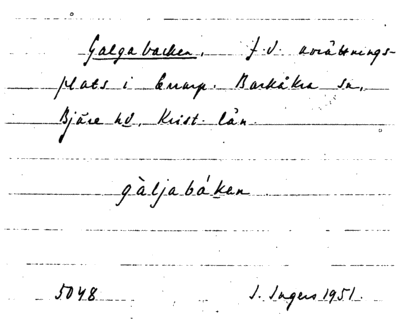 Galgabacken, f.d. avrättnings-
plats i Errarp. Barkåkra sn,
Bjäre hd, Krist. län.
gàljabáken
5048 I. Ingers 1951.